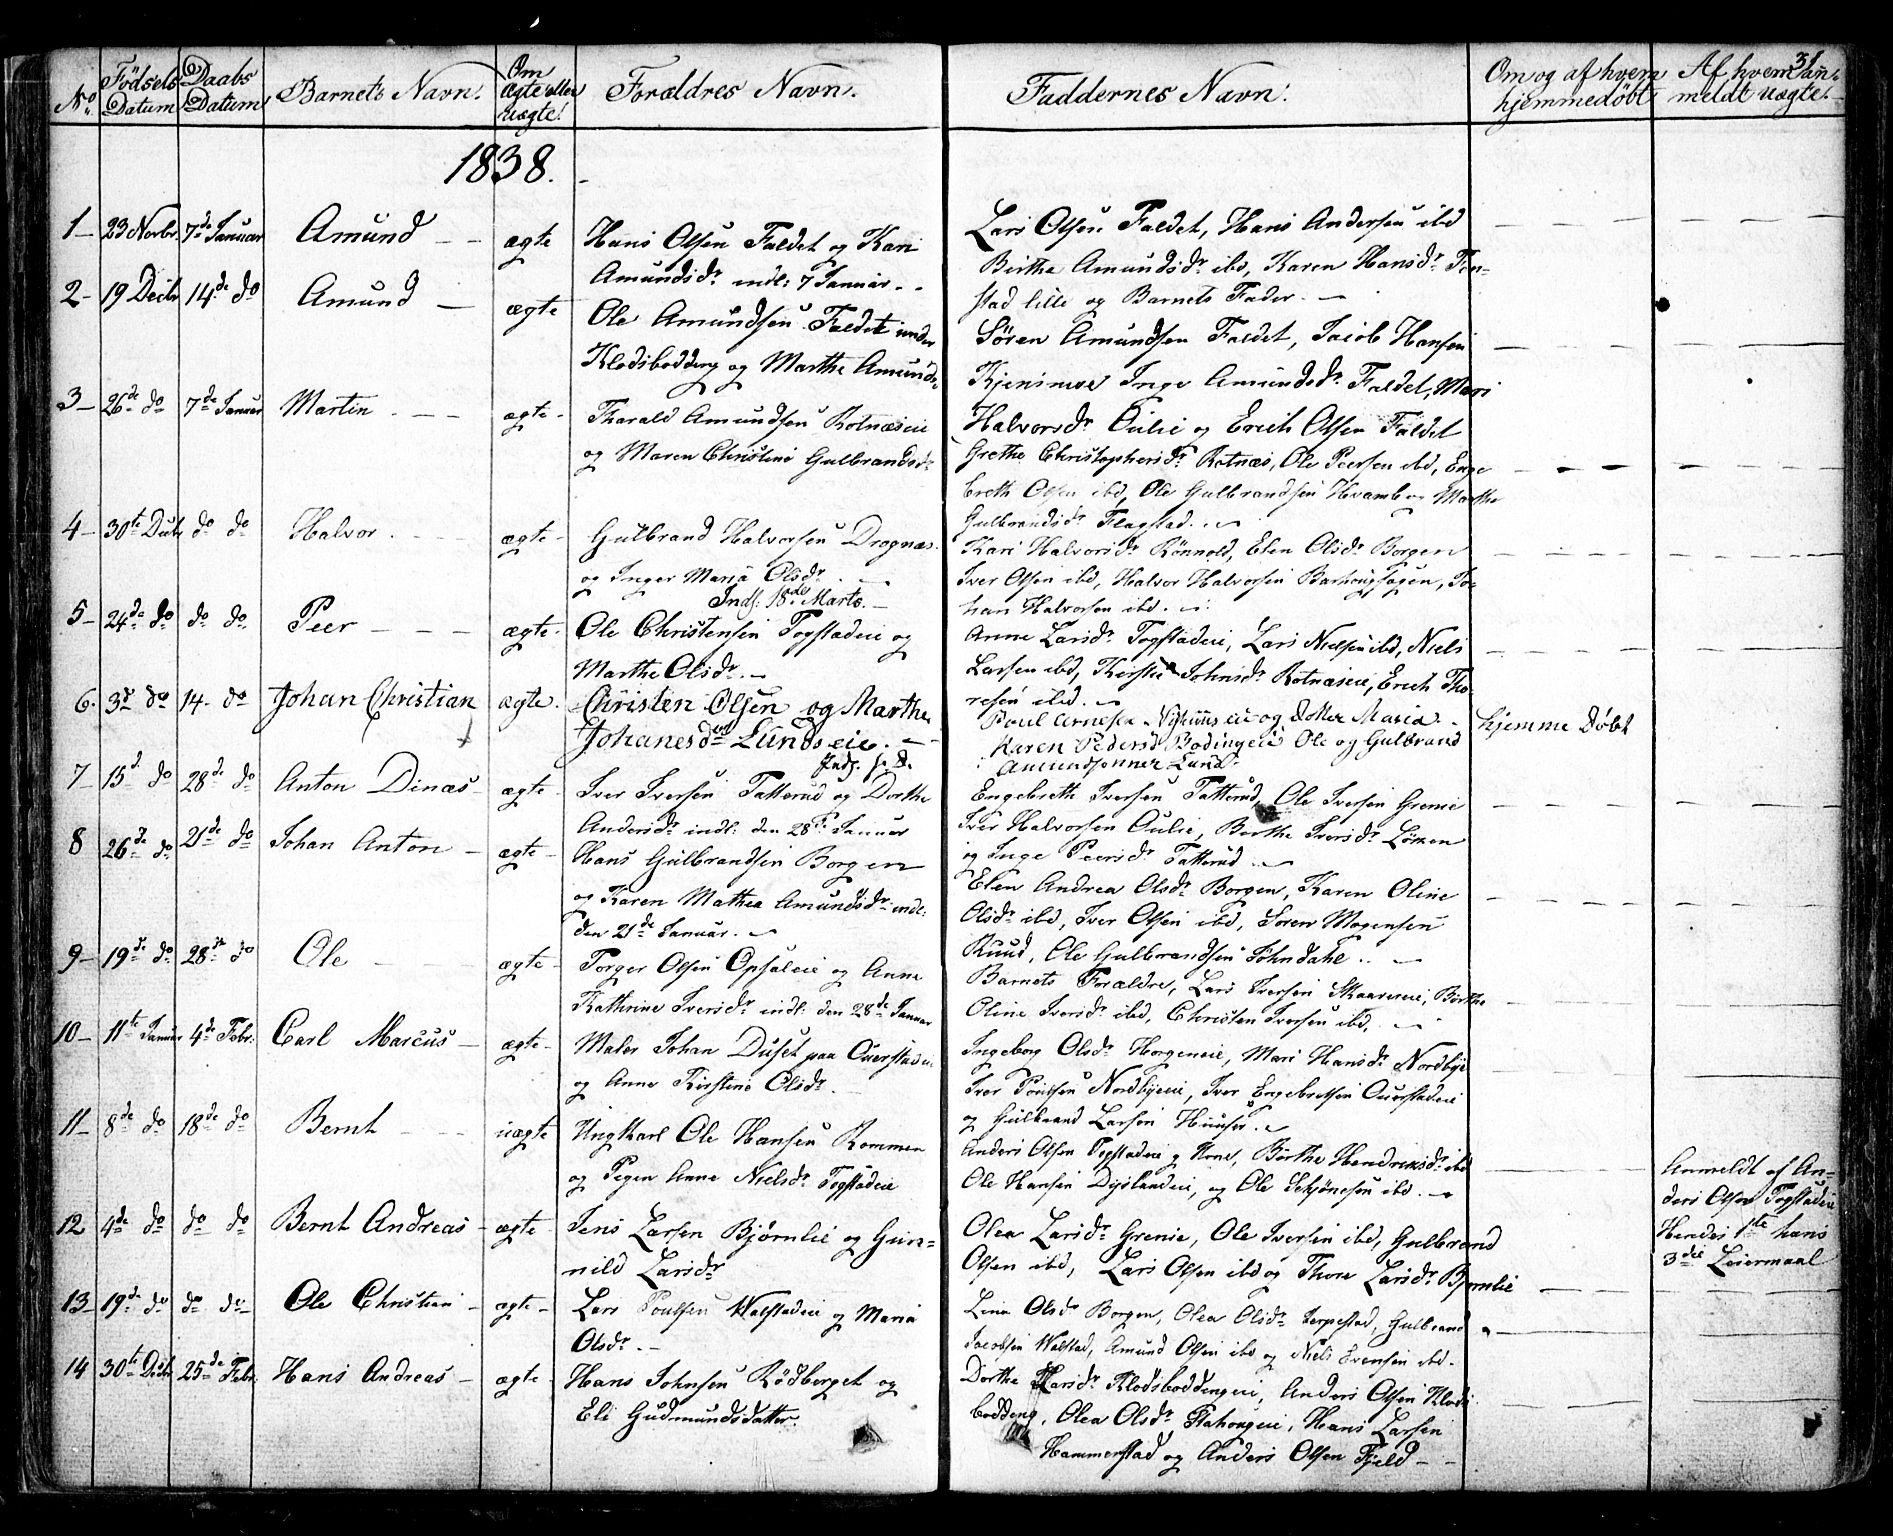 31
No. Födsels Datum Daabs Datum Barnets Navn. Om ægte eller uægte! Forældres Navn. Faddernes Navn. Om og af hvem hjemmedøbt Af hvem anmeldt uægte.
1838.
1 23 Novbr. 7de Januar Amund ægte Hans Olsen Faldet og Kari
Amundsdr. indl: 7 Januar
Lars Olsen Faldet, Hans Andersen ibd
Birthe Amundsdr. ibd, Karen Hansdr. Ton-
stad lille og Barnets Fader.
2 19 Decbr 14de do Amund ægte Ole Amundsen Faldet under
Klodsbodding og Marthe Amunds
Sören Amundsen Faldet, Jacob Hansen
Inge Amundsdr. Faldet, Mari
Halvorsdr. Aulie og Erich Olsen Faldet
3 26de do 7de Januar Martin ægte Tharald Amundsen Rotnæseie
og Maren Christine Gulbrandsdr
Grethe Christophersdr. Rotnæs, Ole Peersen ibd, Enge
breth Olsen ibd, Ole Gulbrandsen Hvamb og Marthe
Gulbrandsdr. Flagstad.
4 30te Decbr do do Halvor ægte Gulbrand Halvorsen Drognæs
og Inger Maria Olsdr.
Inds: 18de Marts.
Kari Halvorsdr. Rönnold, Elen Olsdr. Borgen
Iver Olsen ibd, Halvor Halvorsen, Jo-
han Halvorsen ibd.
5 24de do do do Peer ægte Ole Christensen Togstadeie og
Marthe Olsdr.
Anne Larsdr. Togstadeie, Lars Nielsen ibd, Niels
Larsen ibd, Kirstie Johnsdr. Rotnæseie, Erich Tho-
resen ibd.
6. 3d do 14. do Johan Christian ægte. Christen Olsen og Marthe
Johanesdtr Lundseie.
Poul Arnesen og Maria
Karen Pedersd Bodingeie Ole og Gulbrand
Amundsønner Lund
hjemme Døbt
7 15d do 28de do Anton Dinæs ægte Iver Iversen Tatterud og Dorthe
Andersdr. indl: den 28de Januar
Engebreth Iversen Tatterud, Ole Iversen Grenie
Iver Halvorsen Aulie, Berthe Iversdr. Lömen
og Inge Peersdr. Tatterud
8 26de do 21de do Johan Anton ægte Hans Gulbrandsen Borgen
og Karen Mathea Amundsdr. indl:
den 21de Januar.
Elen Andrea Olsdr. Borgen, Karen Oline
Olsdr. ibd, Iver Olsen ibd, Sören Mogensen
Ruud, Ole Gulbrandsen Föhndahl
9 19de do 28de do Ole ægte Torger Olsen Opsaleie og Anne
Kathrine Iversdr. indl: den 28de Januar
Barnets Forældre, Lars Iversen Skaarereie, Birthe
Oline Iversdr. ibd, Christen Iversen ibd.
10 11te Januar 4de Febr. Carl Marcus ægte Maler Johan Duset paa Ouerstadeie
og Anne Kirstine Olsdr.
Ingeborg Olsdr. Horgeneie, Mari Hansdr. Nordbye
Iver Poulsen Nordbyeeie, Iver Engebretsen Ouerstadeie
og Gulbrand Larsen Huuser.
11 8de do 18de do Bernt uægte Ungkarl Ole Hansen Rommen
og Pigen Anne Nielsdr. Togstadeie
Anders Olsen Togstadeie og Kone, Börthe Hendriksdr. ibd
Ole Hansen Dyslandeie, og Ole Schönesen ibd.
Anmeldt af An-
ders Olsen Togstadeie
Hendes 1te hans
3die Leiermaal
12 4de do do do Bernt Andreas ægte Jens Larsen Bjørnlie og Gun=
nild Larsdr
Olea Larsdr. Grenie, Ole Iversen ibd, Gulbrand
Olsen ibd, Lars Olsen ibd og Thore Larsdr. Bjørnlie
13 19de do do do Ole Christian ægte Lars Poulsen Walstadeie og Maria
Olsdr.
Lena Olsdr Borgen, Olea Olsdr. Serpestad, Gulbrand
Jacobsen Walstad, Amund Olsen ibd og Niels Evensen ibd.
14 30te Decbr 25de Febr. Hans Andreas ægte Hans Johnsen Rödberget og
Eli Gudmundsdatter.
Dorthe Larsdr. Klodsboddingeie, Anders Olsen Klods
bodding, Olea Olsdr. Stahougeie, Hans Larsen
Hammerstad og Anders Olsen Fjeld